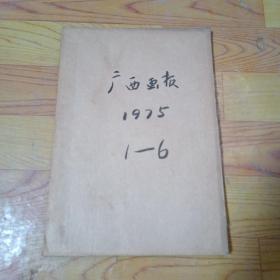 广西画报
1975
1—6